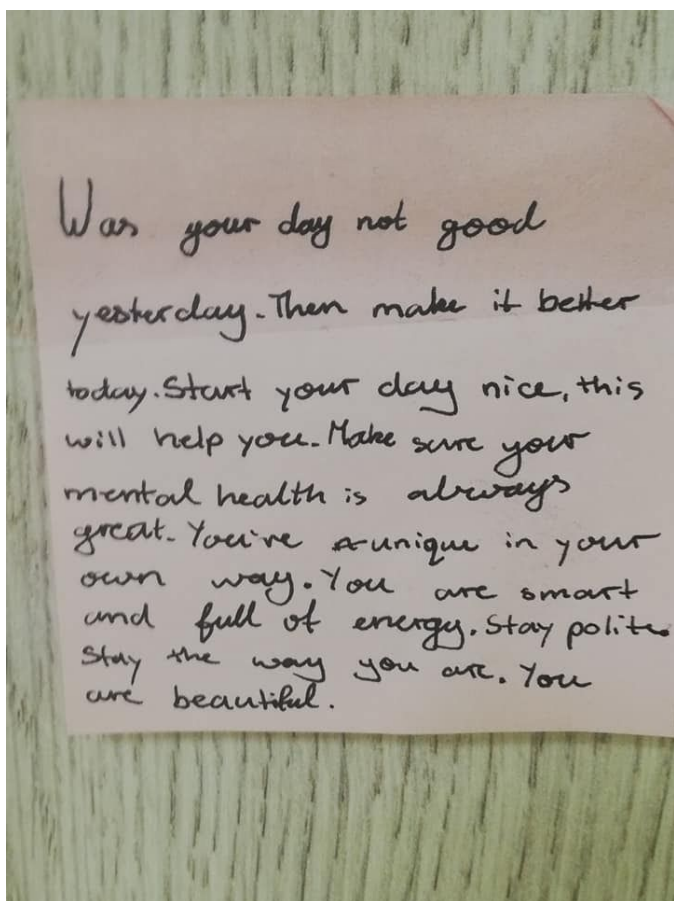 Was your day not good
yesterday. Then make it better
today. Start your day nice, this
will help you. Make sure your
mental health is always
great. You're unique in your
own way. You are smart
and full of energy. Stay polite.
Stay the way you are. You
are beautiful.